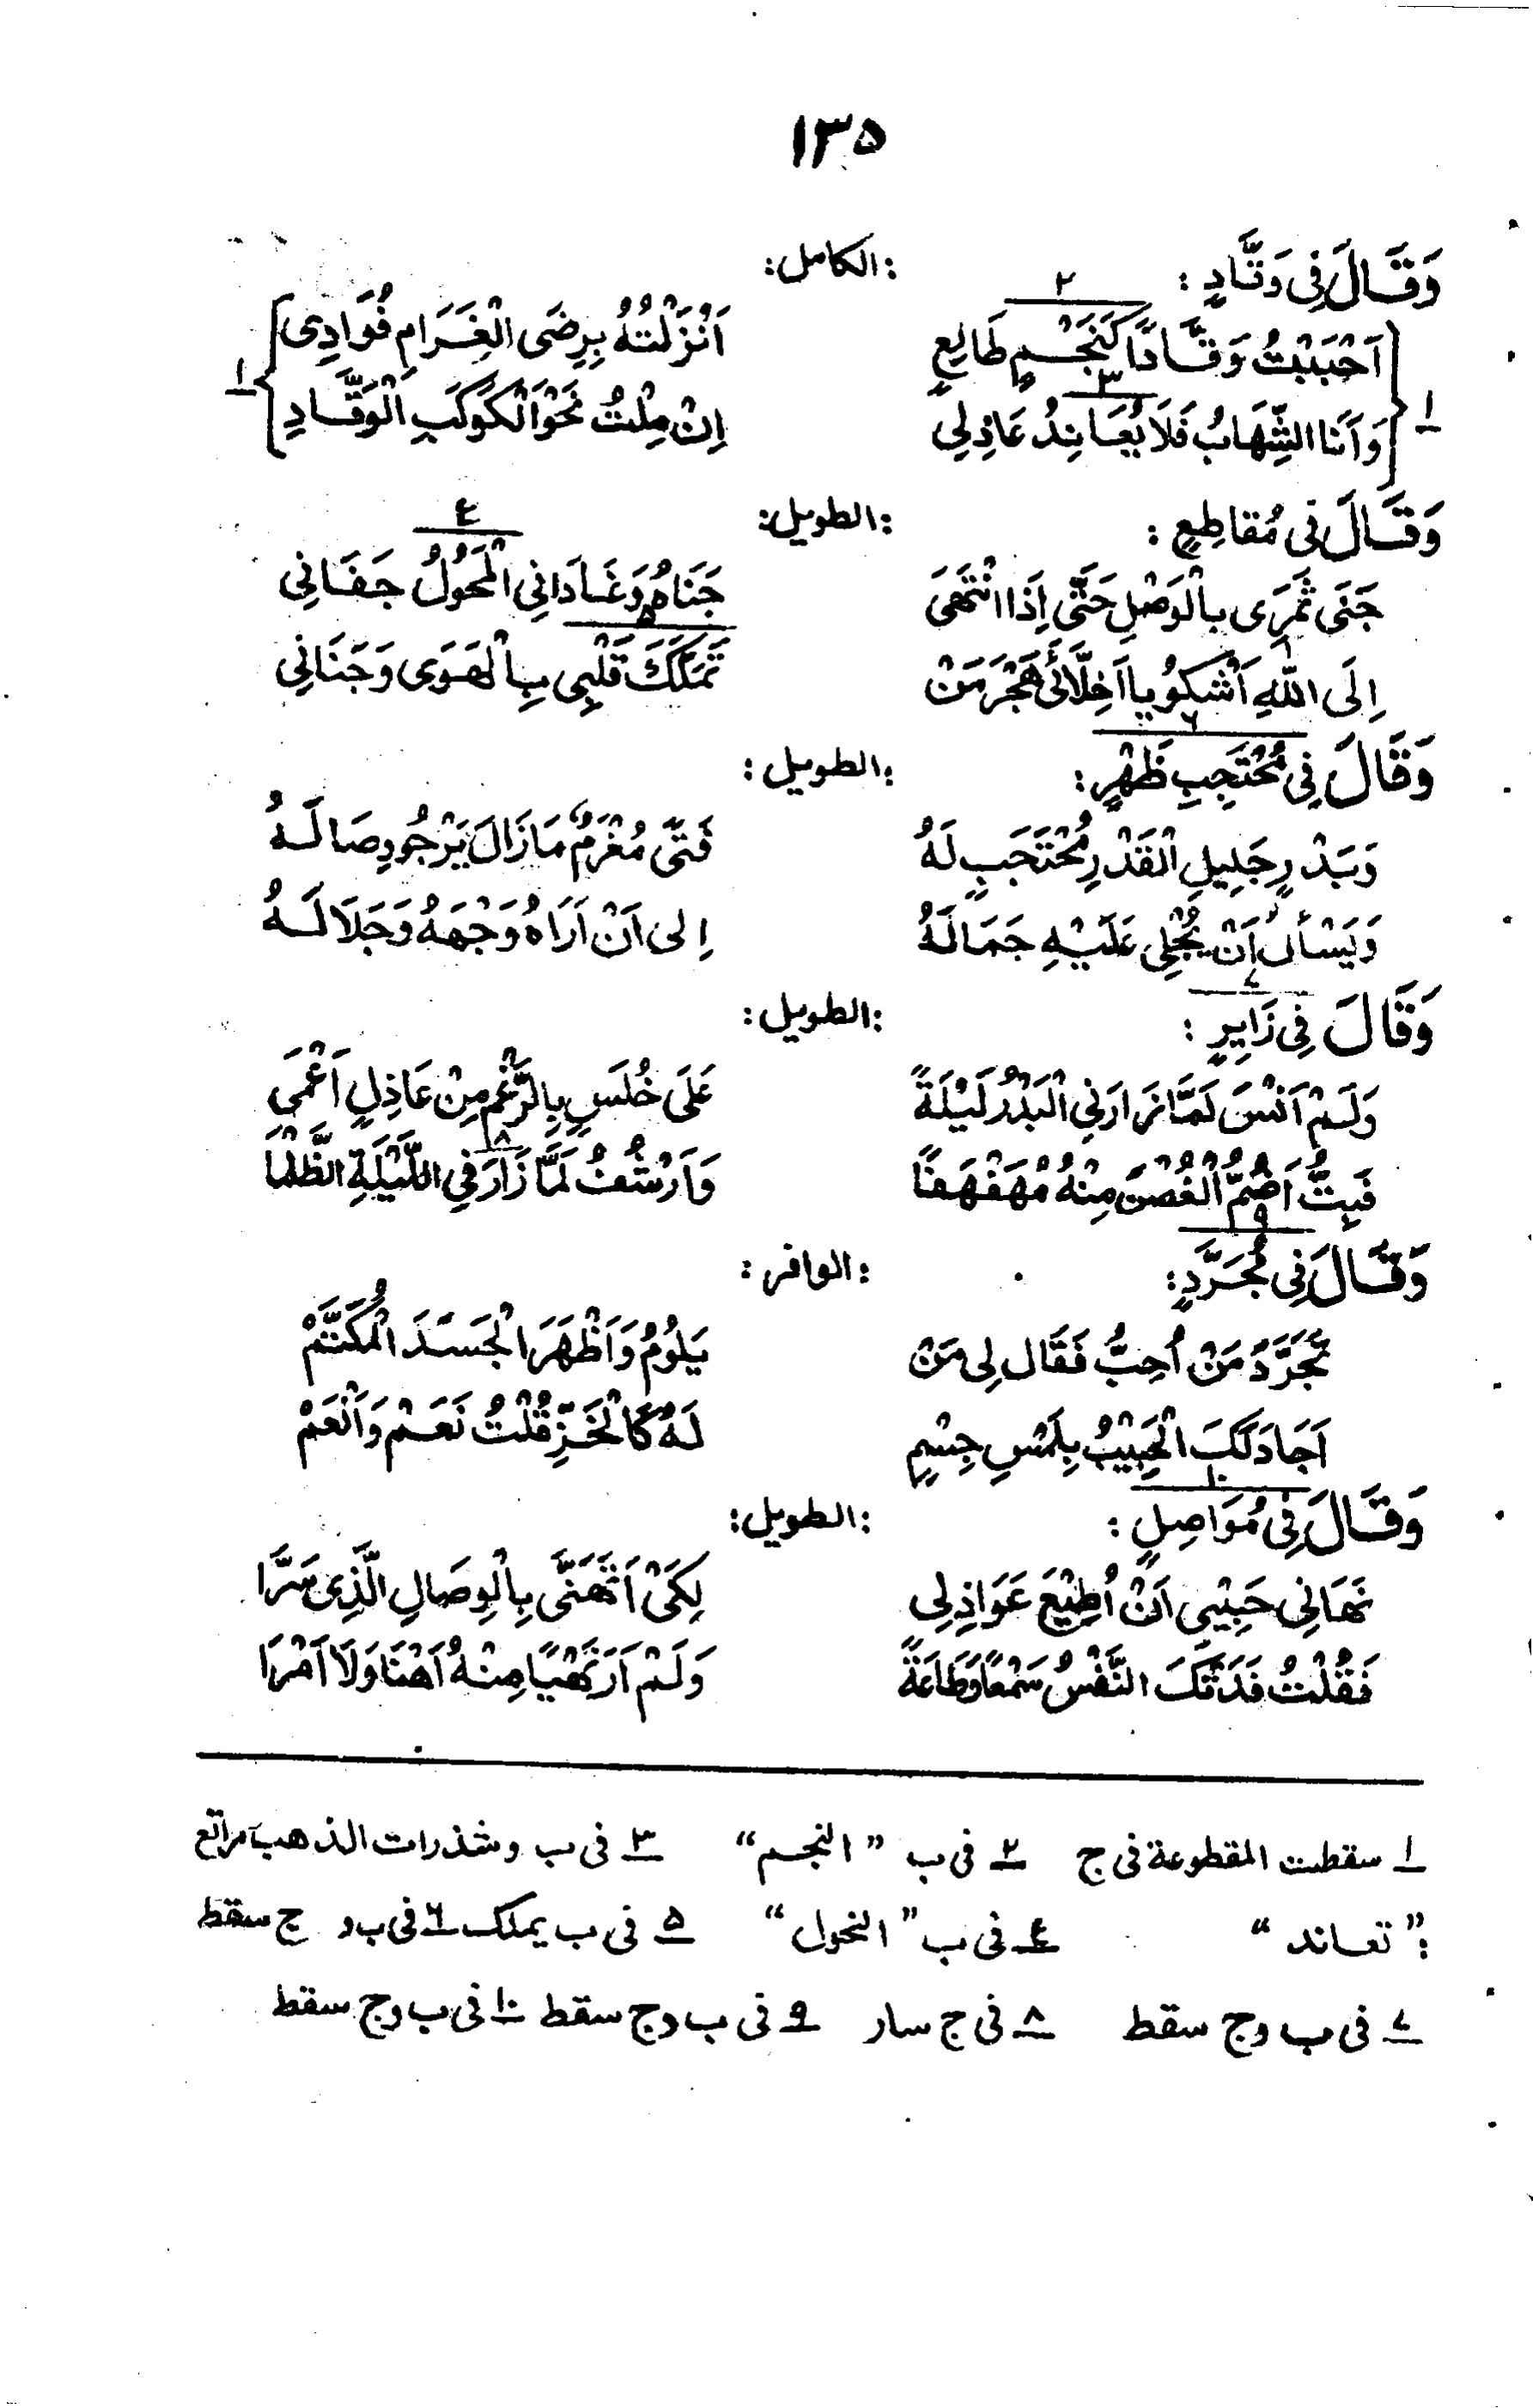 ١٣٥
وَقَالَ فِى وَقَّادٍ : :الكامل:
١ اَحْبَبْتُ وَقَّادًا كَنَجْمٍ طَالِعٍ ٢ اَنْزَلْتُهُ بِرِضَى الْغَرَامِ فُوَادِى ١
وَاَنَا الشِّهَابُ فَلَا يُعَانِدُ عَاذِلِى ٣ اِنْ مِلْتُ نَحْوَ الْكَوْكَبِ الْوَقَّادِ
وَقَالَ فى مُقاطِعٍ : :الطويل:
جَنَى ثَمَرِى بِالْوَصْلِ حَتَّى اِذَا انْتَهَى جَنَاهُ وَغَادَانِي الْمَحُوْلُ جَفَانِى ٤
اِلَى اللّٰهِ اَشْكُوْ يا اَخِلَّائى هَجْرَ مَنْ تَمَلَّكَ قَلْبِى بِالْهَوَى وَجَنَانِى ٥
وَقَالَ فِى مُحْتَجِبِ ظَهْرٍ ٦ : :الطويل:
وَبَدْرٍ جَلِيلِ الْقَدْرِ مُحْتَجَبٍ لَهُ فَتًى مُغْرَمٌ مَازَالَ يَرْجُو وِصَالَهُ
وَيَسْألُ اَنْ يُجْلِى عَلَيْهِ جَمَالَهُ اِلى اَنْ اَرَاهُ وَجْهَهُ وَجَلَالَهُ
وَقَالَ فِى زَايِرٍ ٧ : :الطويل:
وَلَمْ اَنْسَ لَمَّا زَارَنِى الْبَدْرُ لَيْلَةً عَلَى خُلَسٍ بِالرَّغْمِ مِنْ عَاذِلٍ اَعْمَى
فَبِتُّ اَضُمُّ الْغُصْنَ مِنْهُ مُهَفْهَفًا وَاَرْشُفُ لَمَّا زَارَ فِي اللَّيْلَةِ الظَّلْمَا ٨
وَقَالَ فِى مُجَرَّدٍ ٩ : :الوافر:
تَجَرَّدَ مَنْ اُحِبُّ فَقَالَ لِى مَنْ يَلُوْمُ وَاَظْهَرَ الْجَسَدَ الْمُكَتَّمْ
اَجَادَ لَكَ الْحَبِيْبُ بِلَمْسِ جِسْمٍ لَهُ كَالْخَزِّ قُلْتُ نَعَمْ وَاَنْعَمْ
وَقَالَ فِى مُوَاصِلٍ ١٠ : :الطويل:
نَهَانِى حَبِيْبِى اَنْ اُطِيْعَ عَوَاذِلِى لِكَىْ اَتَهَنَّى بِالْوِصَالِ الَّذِى سَرَّا
فَقُلْتُ فَدَتْكَ النَّفْسُ سَمْعًا وَطَاعَةً وَلَمْ اَرَ نَهْيًا مِنْهُ اَهْنَا وَلَا اَمْرَا
١ سقطت المقطوعة فى ج ٢ فى ب "النجم" ٣ فى ب وشذرات الذهب
:"تعاند" ٤ فى ب "النحول" ٥ فى ب يملك ٦ فى ب و ج سقط
٧ فى ب وج سقط ٨ فى ج سار ٩ فى ب وج سقط ١٠ فى ب وج سقط